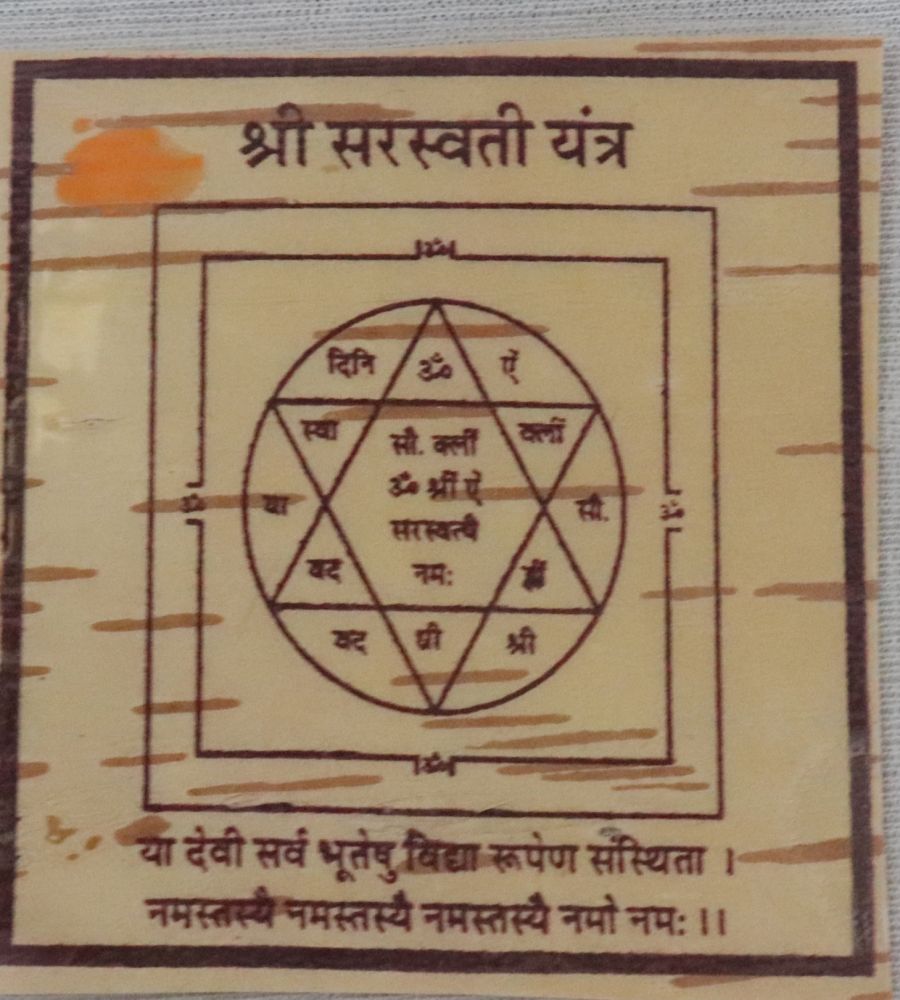 श्री सरस्वती यंत्र
ॐ
दिनि ॐ ऐं
स्वा सौ. क्लीं क्लीं
ॐ ॐ श्रीं ऐं ॐ
या सरस्वत्यै सौ.
वद नमः
वद श्री श्री
ॐ
या देवी सर्व भूतेषु विद्या रूपेण संस्थिता ।
नमस्तस्यै नमस्तस्यै नमस्तस्यै नमो नमः ।।